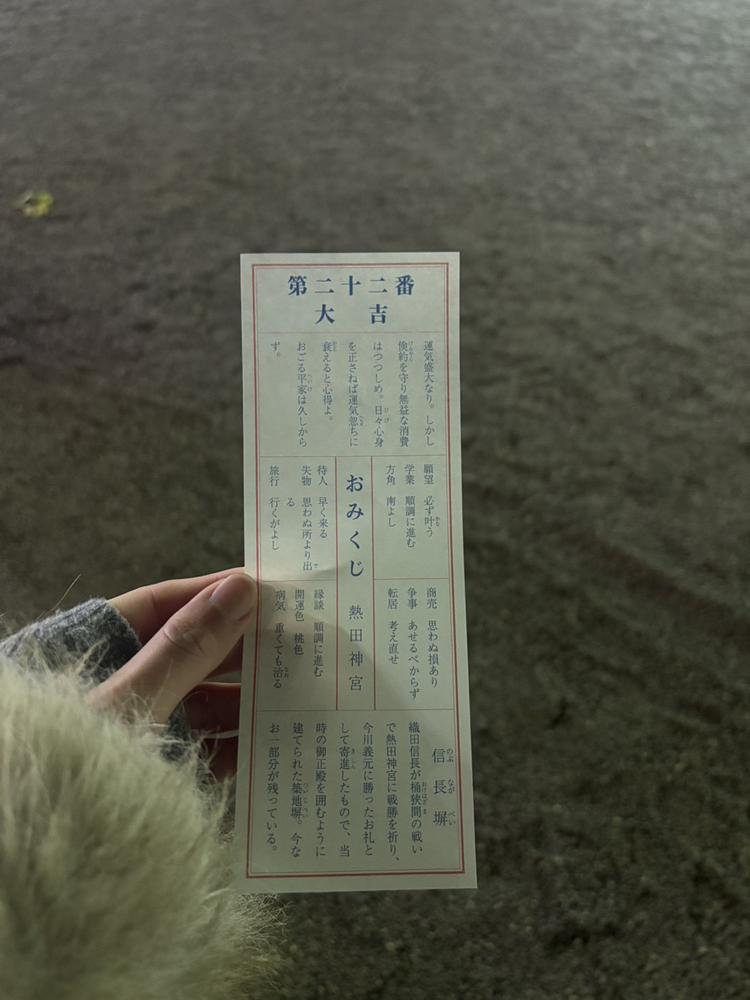 第二十二番
大吉
運気盛大なり。しかし
倹約を守り無益な消費
はつつしめ。日々心身
を正さねば運気忽ちに
衰えると心得よ。
おごる平家は久しから
ず。
願望 必ず叶う
学業 順調に進む
方角 南よし
商売 思わぬ損あり
争事 あせるべからず
転居 考え直せ
おみくじ 熱田神宮
待人 早く来る
失物 思わぬ所より出
る
旅行 行くがよし
縁談 順調に進む
開運色 桃色
病気 重くても治る
信長塀
織田信長が桶狭間の戦い
で熱田神宮に戦勝を祈り、
今川義元に勝ったお礼と
して寄進したもので、当
時の御正殿を囲むように
建てられた築地塀。今な
お一部分が残っている。